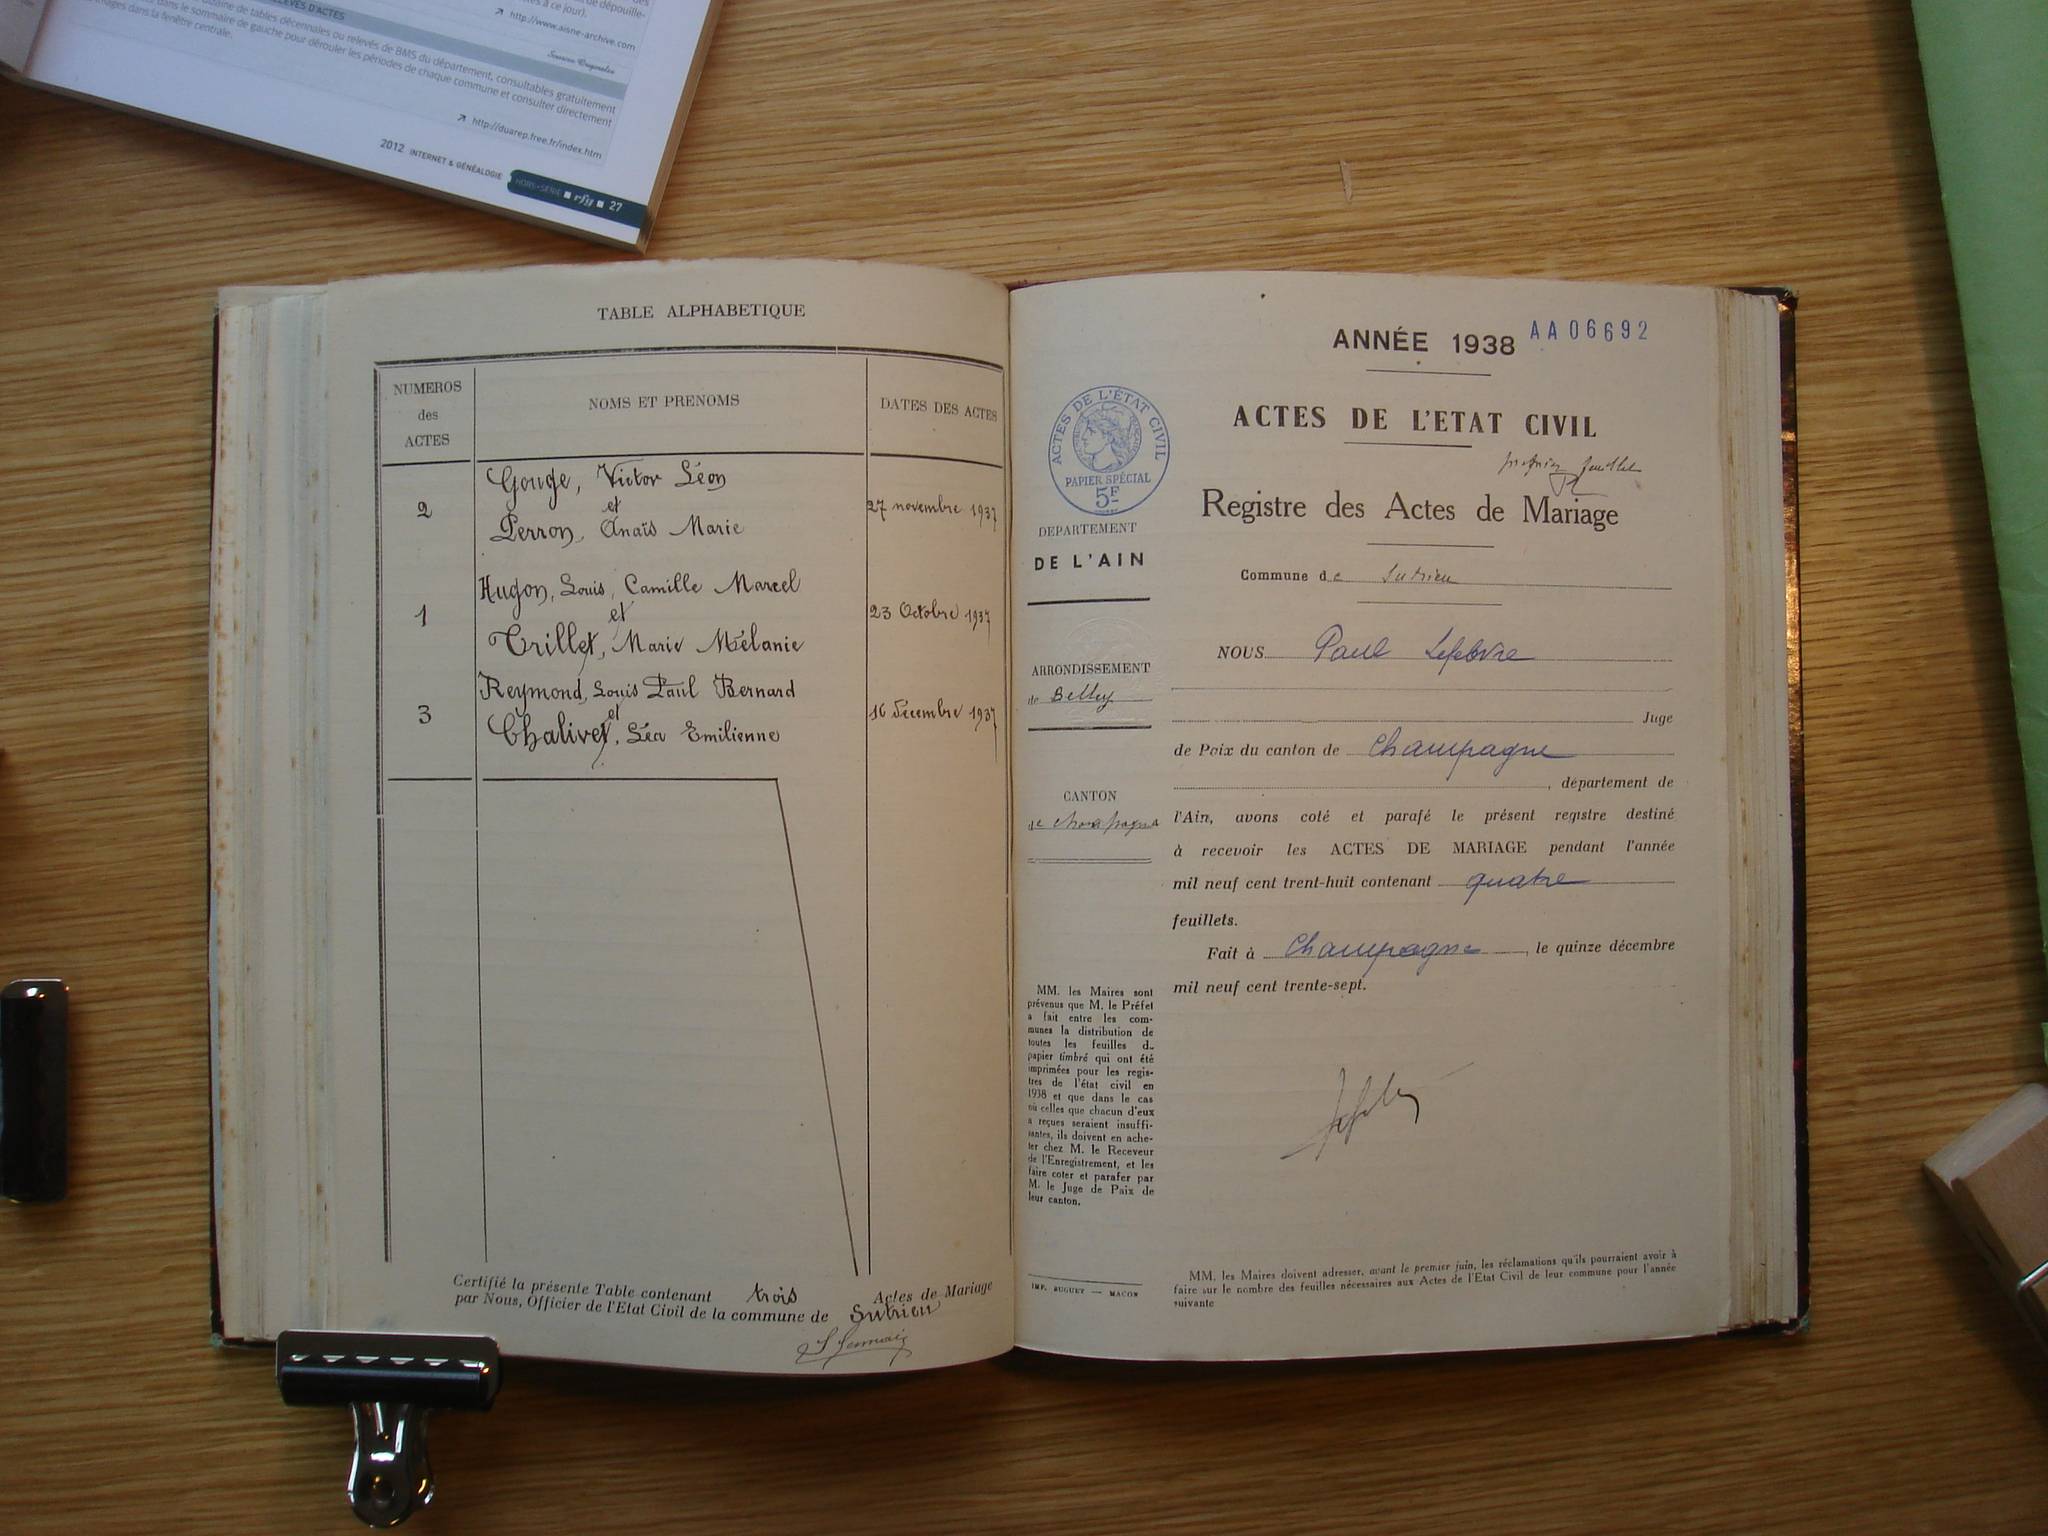 RELEVÉS D'ACTES
dizaine de tables décennales ou relevés de BMS du département, consultables gratuitement
dans le sommaire de gauche pour dérouler les périodes de chaque commune et consulter directement
images dans la fenêtre centrale.
des
de dépouille-
à ce jour).
http://www.aisne-archive.com
http://duarep.free.fr/index.htm
2012 INTERNET & GÉNÉALOGIE HORS-SÉRIE rfg 27
TABLE ALPHABETIQUE
NUMEROS des ACTES
NOMS ET PRENOMS
DATES DES ACTES
2
Gouge, Victor Léon
et
Perron, Anaïs Marie
27 novembre 1937
1
Hugon, Louis, Camille Marcel
et
Trillet, Marie Mélanie
23 Octobre 1937
3
Reymond, Louis Paul Bernard
et
Chalivet, Léa Emilienne
16 Décembre 1937
Certifié la présente Table contenant trois Actes de Mariage
par Nous, Officier de l'Etat Civil de la commune de Sutrieu
ANNÉE 1938
AA06692
ACTES DE L'ETAT CIVIL
Registre des Actes de Mariage
Commune de Sutrieu
ACTES DE L'ÉTAT CIVIL
PAPIER SPÉCIAL
5F
DEPARTEMENT
DE L'AIN
ARRONDISSEMENT
de Belley
CANTON
de Champagne
NOUS Paul Lefebvre
Juge
de Paix du canton de Champagne
, département de
l'Ain, avons coté et parafé le présent registre destiné
à recevoir les ACTES DE MARIAGE pendant l'année
mil neuf cent trent-huit contenant quatre
feuillets.
Fait à Champagne, le quinze décembre
mil neuf cent trente-sept.
MM. les Maires sont
prévenus que M. le Préfet
a fait entre les com-
munes la distribution de
toutes les feuilles d
papier timbré qui ont été
imprimées pour les regis-
tres de l'état civil en
1938 et que dans le cas
où celles que chacun d'eux
a reçues seraient insuffi-
santes, ils doivent en ache-
ter chez M. le Receveur
de l'Enregistrement, et les
faire coter et parafer par
M. le Juge de Paix de
leur canton.
IMP. BUGUET — MACON
MM. les Maires doivent adresser, avant le premier juin, les réclamations qu'ils pourraient avoir à
faire sur le nombre des feuilles nécessaires aux Actes de l'Etat Civil de leur commune pour l'année
suivante